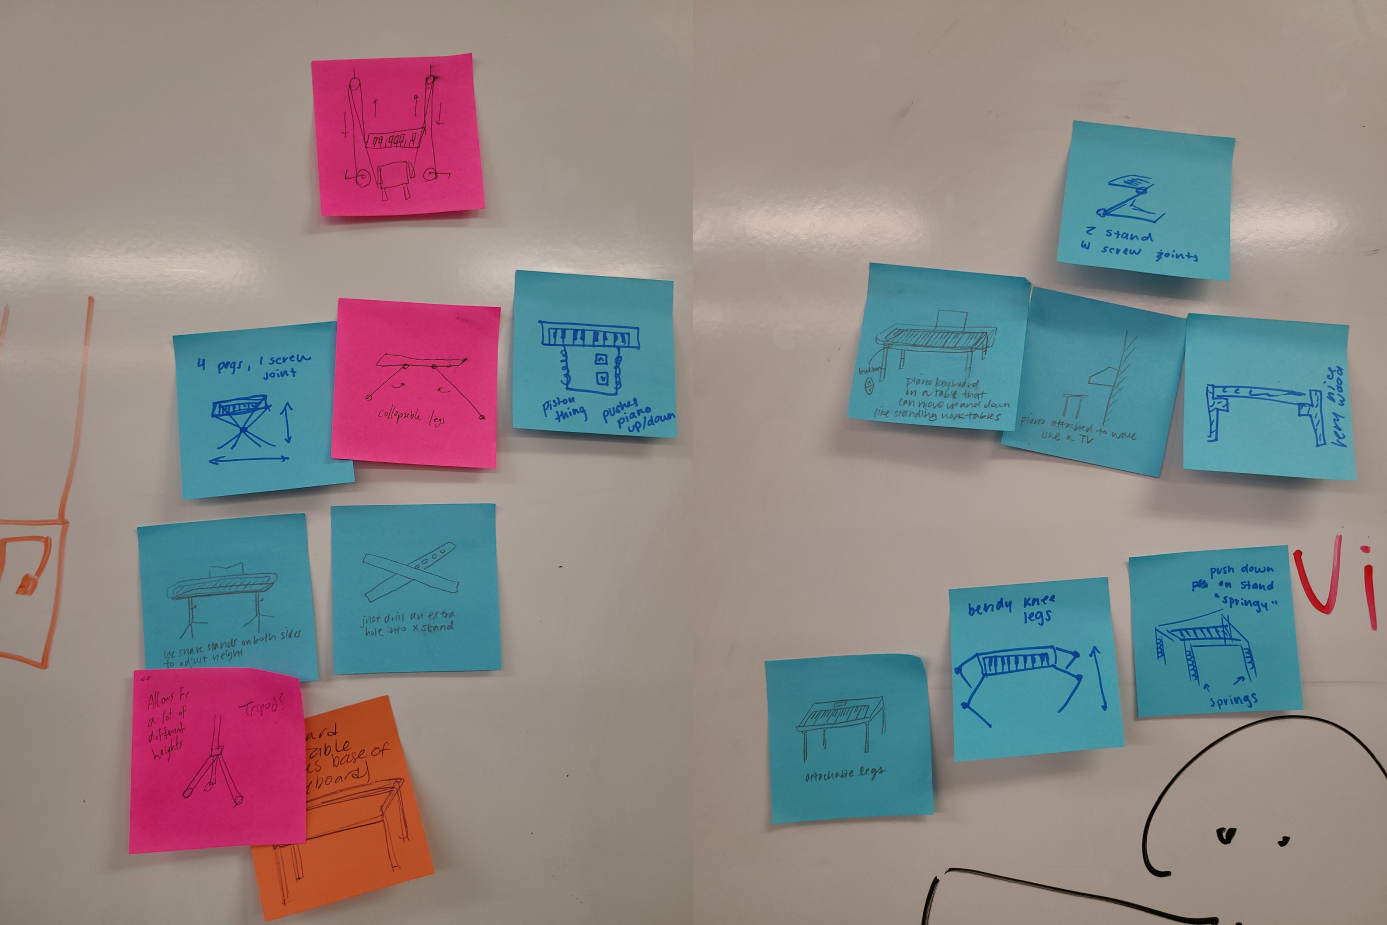 4 pegs, 1 screw
joint
collapsable legs
piston
thing
pushes
piano
up/down
use snare stands on both sides
to adjust height
just drill an extra
hole into x stand
Allows for
a lot of
different
heights
Tripods
ard
table
es base of
eboard)
Z stand
w screw joints
button
piano keyboard
in a table that
can move up and down
like standing work tables
piano attached to wall
like a TV
very nice
wood
attachable legs
bendy knee
legs
push down
on stand
"springy"
springs
Vi